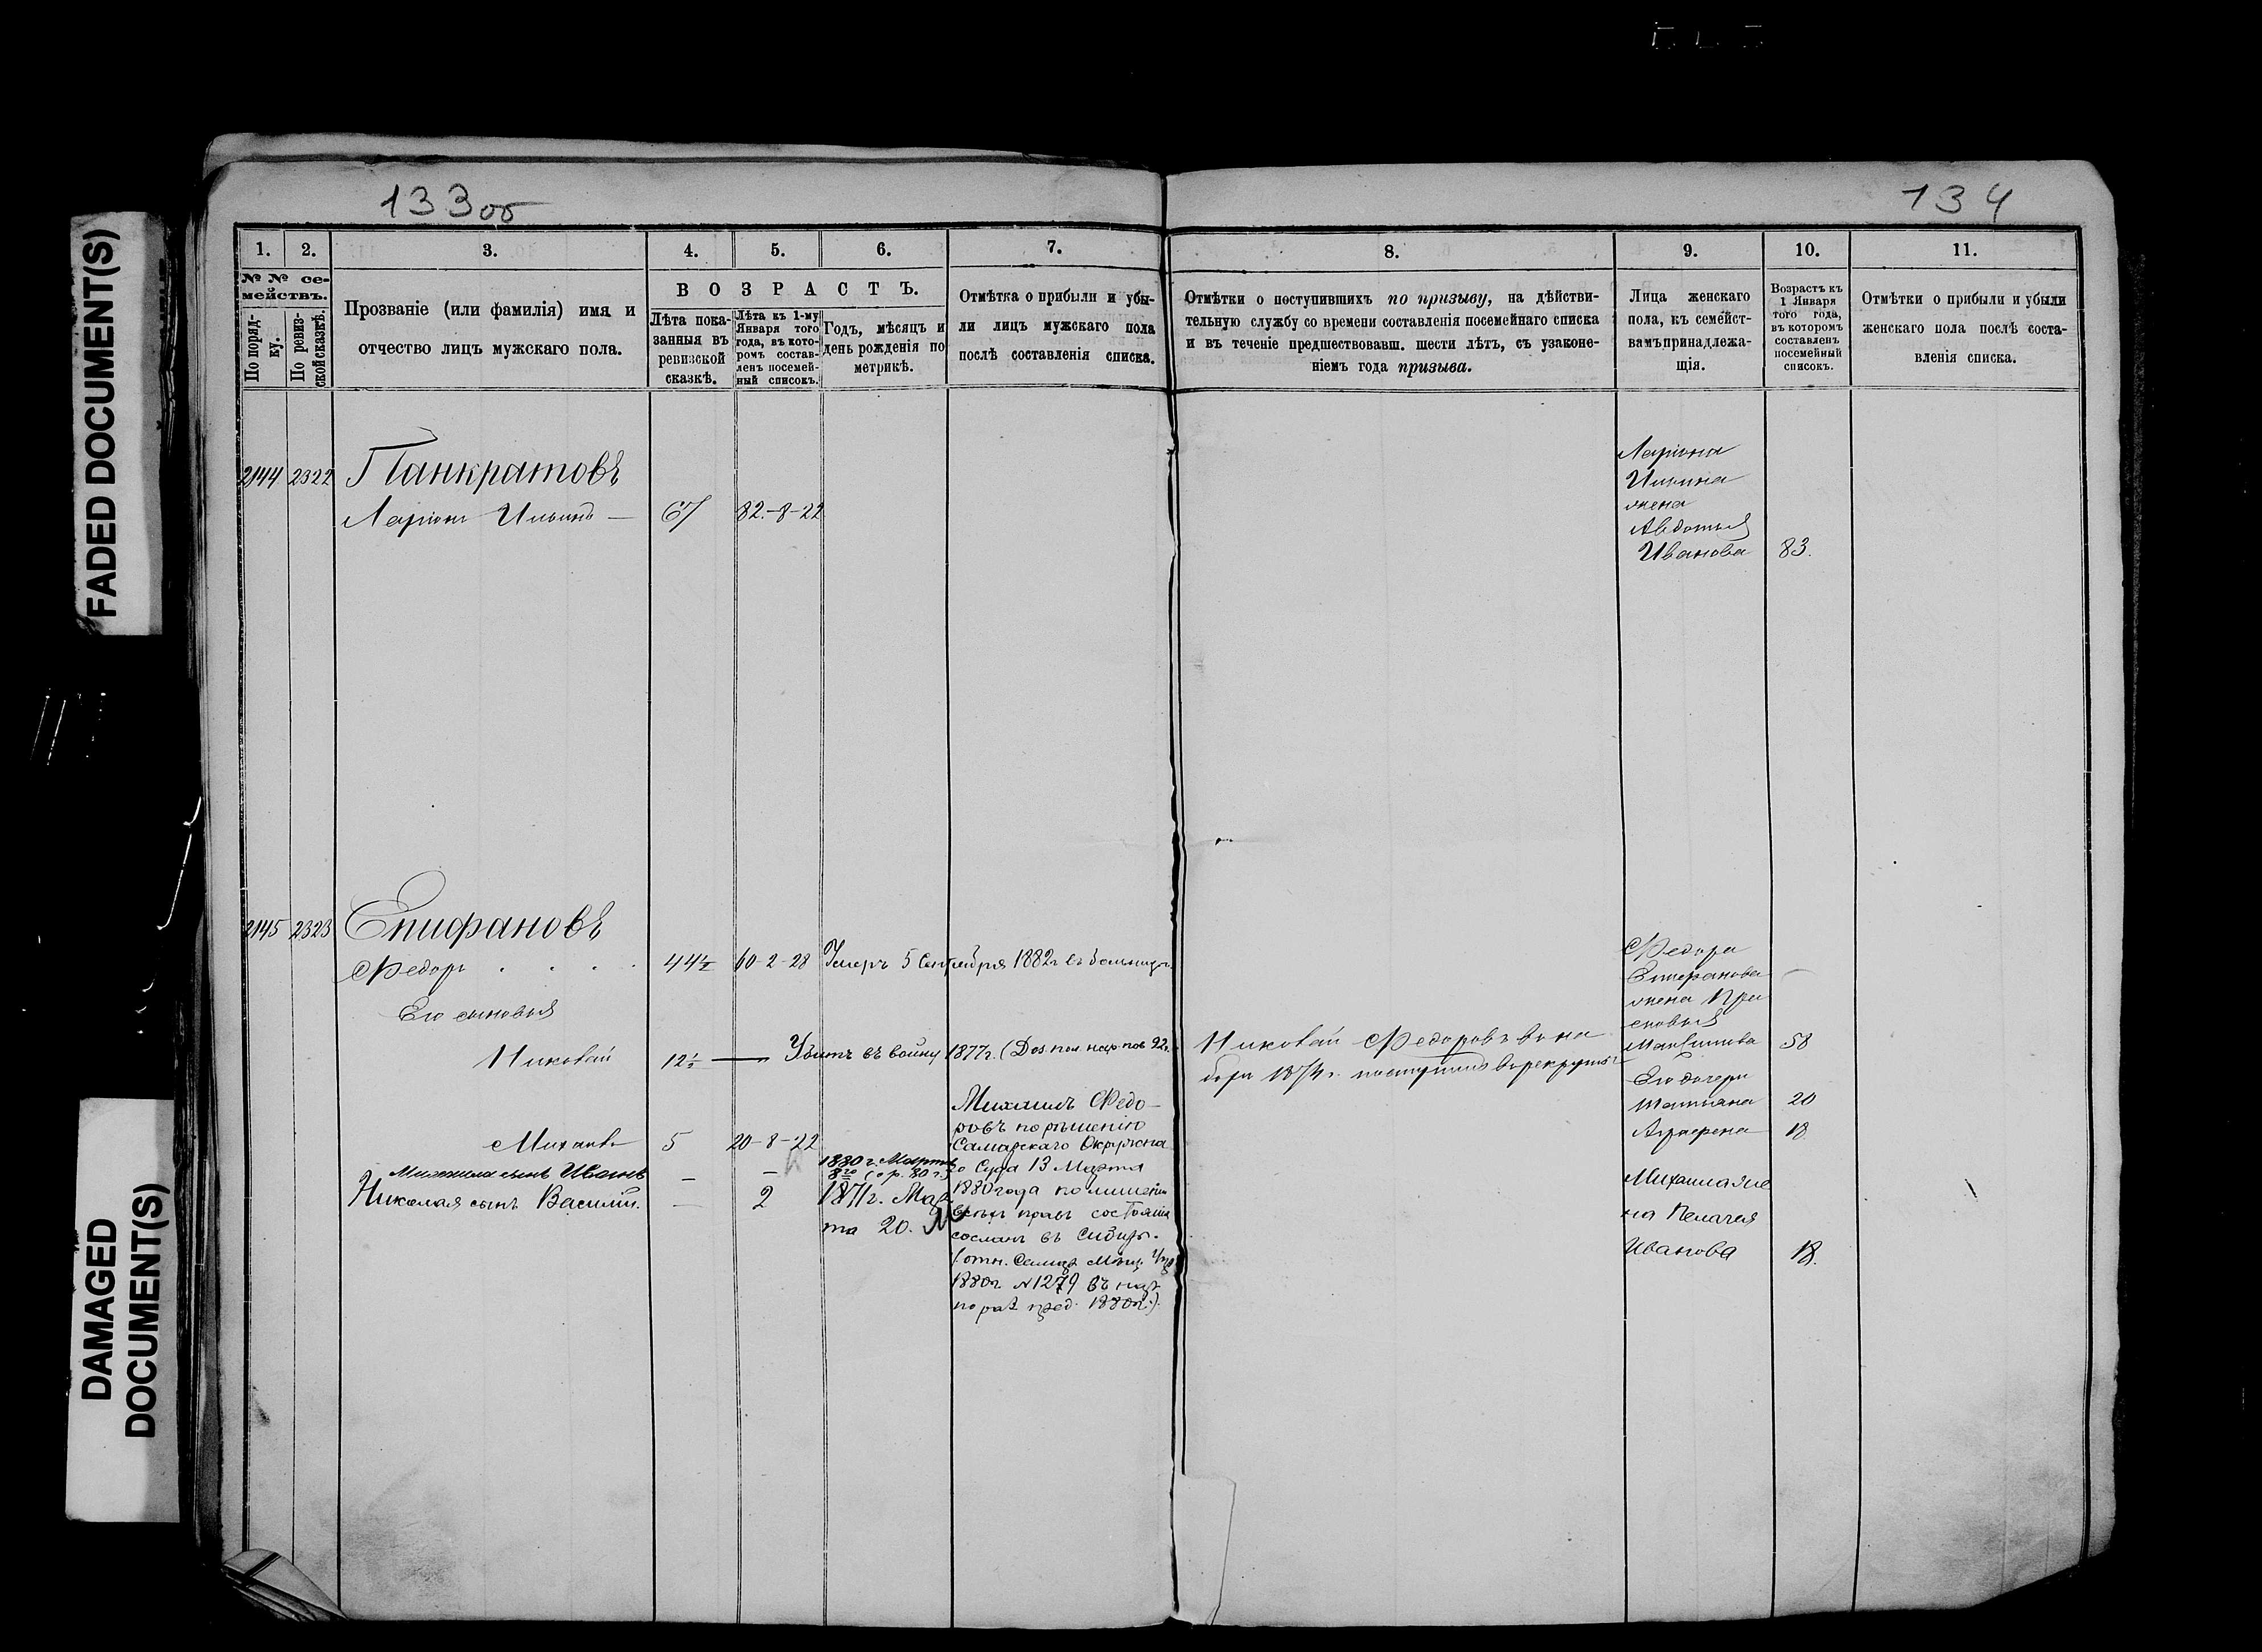 FADED DOCUMENT(S)
DAMAGED
DOCUMENT(S)
133 об
134
1.
2.
3.
4.
5.
6.
7.
8.
9.
10.
11.
№ № се-
мействъ.
По поряд-
ку.
По ревиз-
ской сказкѣ.
Прозваніе (или фамилія) имя и
отчество лицъ мужскаго пола.
ВОЗРАСТЪ.
Лѣта пока-
занныя въ
ревизской
сказкѣ.
Лѣта къ 1-му
Января того
года, въ кото-
ромъ состав-
ленъ посемей-
ный списокъ.
Годъ, мѣсяцъ и
день рожденія по
метрикѣ.
Отмѣтка о прибыли и убы-
ли лицъ мужскаго пола
послѣ составленія списка.
Отмѣтки о поступившихъ по призыву, на дѣйстви-
тельную службу со времени составленія посемейнаго списка
и въ теченіе предшествовавш. шести лѣтъ, съ узаконе-
ніемъ года призыва.
Лица женскаго
пола, къ семейст-
вамъ принадлежа-
щія.
Возрастъ къ
1 Января
того года,
въ которомъ
составленъ
посемейный
списокъ.
Отмѣтки о прибыли и убыли
женскаго пола послѣ соста-
вленія списка.
2144 2322 Панкратовъ
Ларіонъ Ильинъ — 67 82.-8-22
Ларіона
Ильина
жена
Авдотья
Иванова 83.
2145 2323 Епифановъ
Федоръ . . . . 44½ 60-2-28 Умеръ 5 Сентября 1882 г. въ больницѣ.
Его сыновья
Николай 12½ — Убитъ въ войну 1877 г.
Николай Федоровъ въ на
боръ 1874 г. поступилъ въ рекруты
Михаилъ 5 20-8-22
Михаила сынъ Иванъ — —
1880 г. Марта
Николая сынъ Василій. — 2 1871 г. Мар
та 20.
Михаилъ Федо-
ровъ по рѣшенію
Самарскаго Окружна
го Суда 13 Марта
1880 года по лишеніи
всѣхъ правъ состоянія
сосланъ въ Сибирь.
1880 г. №1279
1880 г.).
Федора
Епифанова
жена Пра
сковья
58
Его дочери
Татьяна 20
Аграфена 18
Михаила же
на Пелагея
Иванова 18.